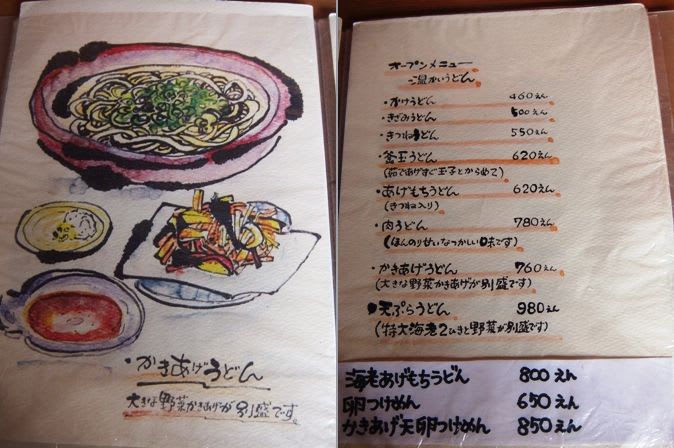 ・かきあげうどん
大きな野菜かきあげが別盛です。
オープンメニュー
温かいうどん
・かけうどん 460えん
・きざみうどん 500えん
・きつねうどん 550えん
・釜玉うどん 620えん
(茹であげすぐ玉子とからめて)
・あげもちうどん 620えん
(きつね入り)
・肉うどん 780えん
(ほんのり甘いなつかしい味です)
・かきあげうどん 760えん
(大きな野菜かきあげが別盛です)
・天ぷらうどん 980えん
(特大海老2ひきと野菜が別盛です)
海老あげもちうどん 800えん
卵つけめん 650えん
かきあげ天卵つけめん 850えん